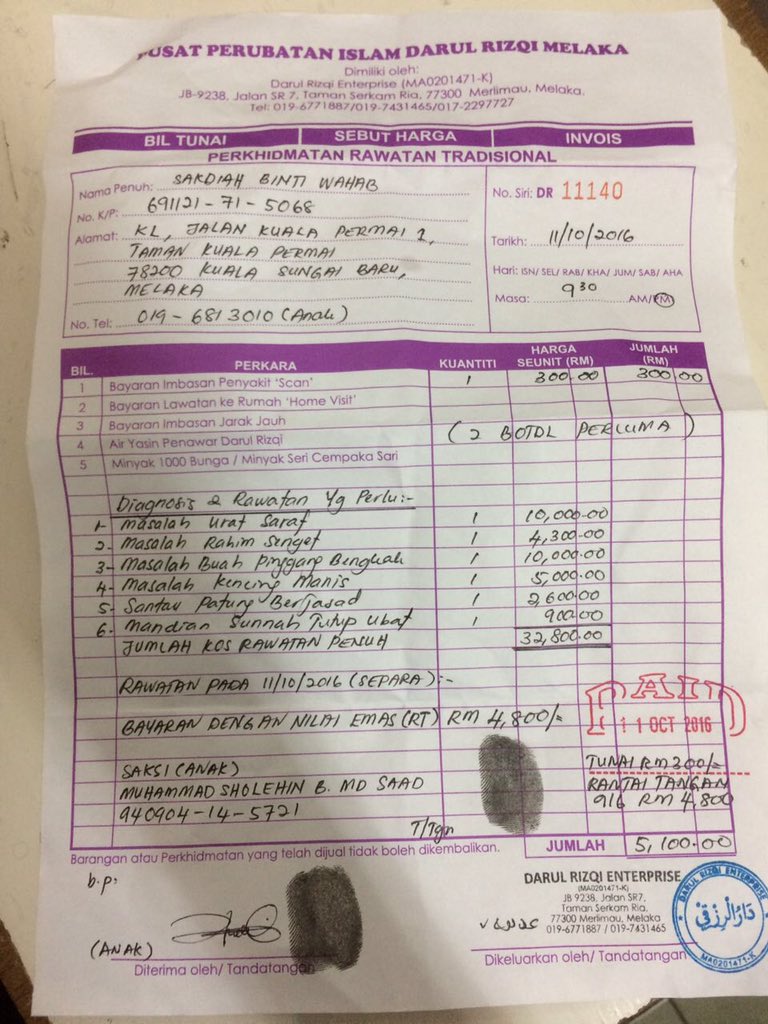 PUSAT PERUBATAN ISLAM DARUL RIZQI MELAKA
Dimiliki oleh:
Darul Rizqi Enterprise (MA0201471-K)
JB-9238, Jalan SR 7, Taman Serkam Ria, 77300 Merlimau, Melaka.
Tel: 019-6771887/019-7431465/017-2297727
BIL TUNAI SEBUT HARGA INVOIS
PERKHIDMATAN RAWATAN TRADISIONAL
Nama Penuh: SAKDIAH BINTI WAHAB
No. K/P: 691121-71-5068
Alamat: KL, JALAN KUALA PERMAI 2,
TAMAN KUALA PERMAI
78200 KUALA SUNGAI BARU,
MELAKA
No. Tel: 019-6813010 (Anak)
No. Siri: DR 11140
Tarikh: 11/10/2016
Hari: ISN/ SEL/ RAB/ KHA/ JUM/ SAB/ AHA
Masa: 9 30 AM/PM
BIL. PERKARA KUANTITI HARGA SEUNIT (RM) JUMLAH (RM)
1 Bayaran Imbasan Penyakit 'Scan' 1 300.00 300.00
2 Bayaran Lawatan ke Rumah 'Home Visit'
3 Bayaran Imbasan Jarak Jauh
4 Air Yasin Penawar Darul Rizqi (2 BOTOL PERCUMA)
5 Minyak 1000 Bunga / Minyak Seri Cempaka Sari
Diagnosis & Rawatan Yg Perlu:-
1- Masalah Urat Saraf 1 10,000.00
2- Masalah Rahim Senget 1 4,300.00
3- Masalah Buah Pinggang Bengkak 1 10,000.00
4- Masalah Kencing Manis 1 5,000.00
5- Santau Patung Berjasad 1 2,600.00
6- Mandian Sunnah Tutup Ubat 1 900.00
JUMLAH KOS RAWATAN PENUH 32,800.00
RAWATAN PADA 11/10/2016 (SEPARA):-
PAID
11 OCT 2016
BAYARAN DENGAN NILAI EMAS (RT) RM 4,800/=
SAKSI (ANAK) TUNAI RM300/=
MUHAMMAD SHOLEHIN B. MD SAAD RANTAI TANGAN
940904-14-5721 916 RM 4,800
T/Tgn
Barangan atau Perkhidmatan yang telah dijual tidak boleh dikembalikan. JUMLAH 5,100.00
b.p:
(ANAK)
Diterima oleh/ Tandatangan
DARUL RIZQI ENTERPRISE
(MA0201471-K)
JB 9238, Jalan SR7,
Taman Serkam Ria,
77300 Merlimau, Melaka
019-6771887 / 019-7431465
Dikeluarkan oleh/ Tandatangan
DARUL RIZQI ENTERPRISE
دار الرزقي
MA0201471-K